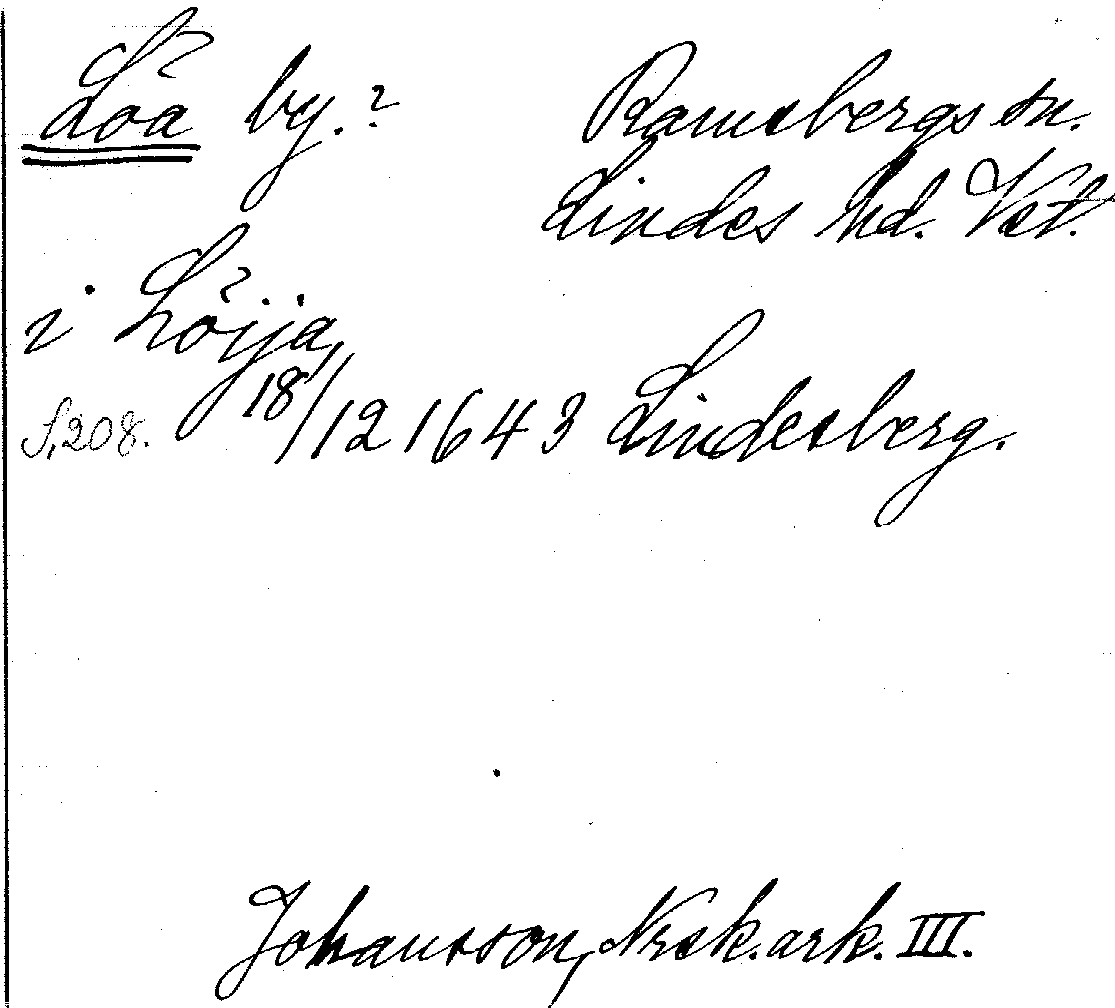 Löa by.? Ramsbergs sn.
Lindes hd. Vstl.
i Löijа,
S. 208. 18/12 1643 Lindesberg.
Johansson, Nrsk. ark. III.